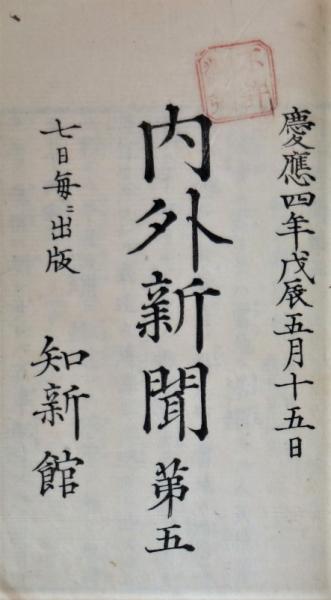 慶應四年戊辰五月十五日
内外新聞 第五
七日毎ニ出版 知新館